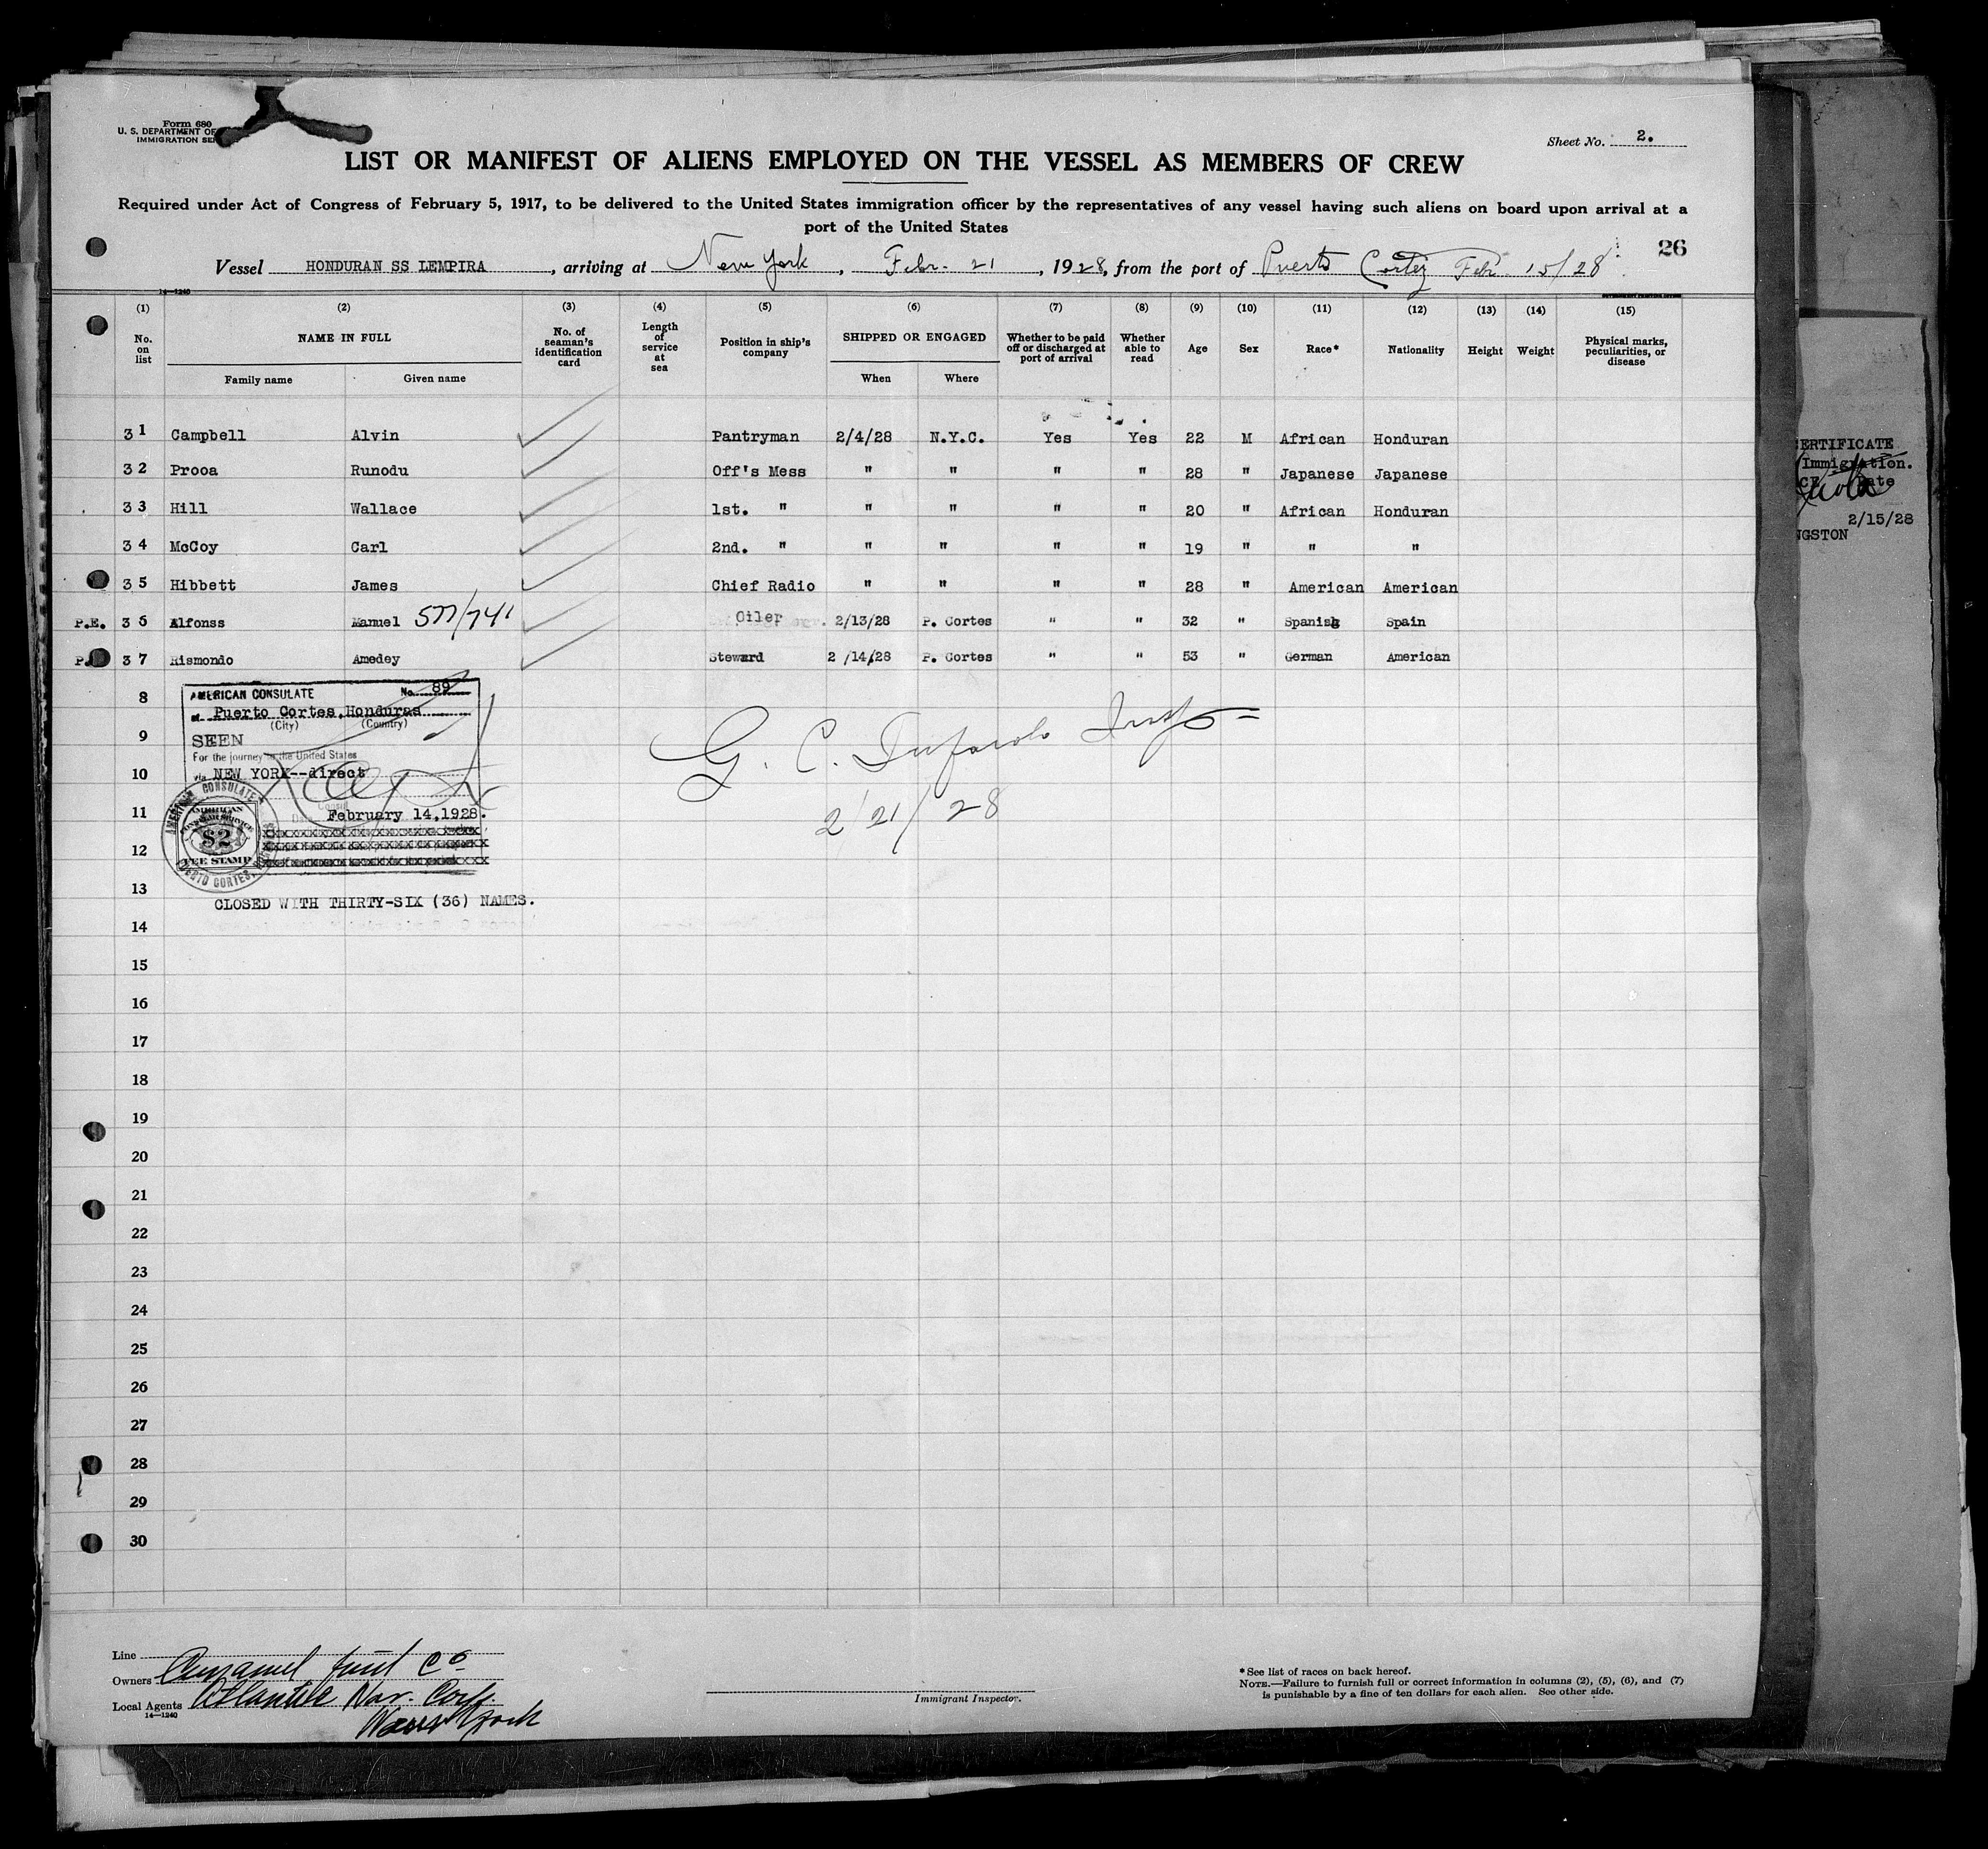 Form 680
U. S. DEPARTMENT OF
IMMIGRATION SE
Sheet No. 2.
LIST OR MANIFEST OF ALIENS EMPLOYED ON THE VESSEL AS MEMBERS OF CREW
Required under Act of Congress of February 5, 1917, to be delivered to the United States immigration officer by the representatives of any vessel having such aliens on board upon arrival at a
port of the United States
26
Vessel HONDURAN SS LEMPIRA, arriving at New York, Febr. 21, 1928, from the port of Puerto Cortez Febr 15/28
14—1240
(1) (2) (3) (4) (5) (6) (7) (8) (9) (10) (11) (12) (13) (14) (15)
No. on list NAME IN FULL No. of seaman's identification card Length of service at sea Position in ship's company SHIPPED OR ENGAGED Whether to be paid off or discharged at port of arrival Whether able to read Age Sex Race* Nationality Height Weight Physical marks, peculiarities, or disease
Family name Given name When Where
31 Campbell Alvin Pantryman 2/4/28 N.Y.C. Yes Yes 22 M African Honduran
32 Prooa Runodu Off's Mess " " " " 28 " Japanese Japanese
33 Hill Wallace 1st. " " " " " 20 " African Honduran
34 McCoy Carl 2nd. " " " " " 19 " " "
35 Hibbett James Chief Radio " " " " 28 " American American
P.E. 36 Alfonss Manuel 577/741 Oiler 2/13/28 P. Cortes " " 32 " Spanish Spain
P. 37 Rismondo Amedey Steward 2/14/28 P. Cortes " " 53 " German American
8
AMERICAN CONSULATE No. 89
at Puerto Cortes, Honduras
(City) (Country)
9
SEEN
For the journey to the United States
10
via NEW YORK--direct
Consul
11
February 14,1928.
12
AMERICAN CONSULATE
AMERICAN
CONSULAR SERVICE
$2
FEE STAMP
PUERTO CORTES,
G. C. Insp
2/21/28
13
CLOSED WITH THIRTY-SIX (36) NAMES.
14
15
16
17
18
19
20
21
22
23
24
25
26
27
28
29
30
Line
Owners Cuyamel Fruit Co
Local Agents Atlantic Nav. Corp.
New York
14—1240
Immigrant Inspector.
*See list of races on back hereof.
NOTE.—Failure to furnish full or correct information in columns (2), (5), (6), and (7)
is punishable by a fine of ten dollars for each alien. See other side.
ERTIFICATE
Immigration.
Date
2/15/28
NGSTON